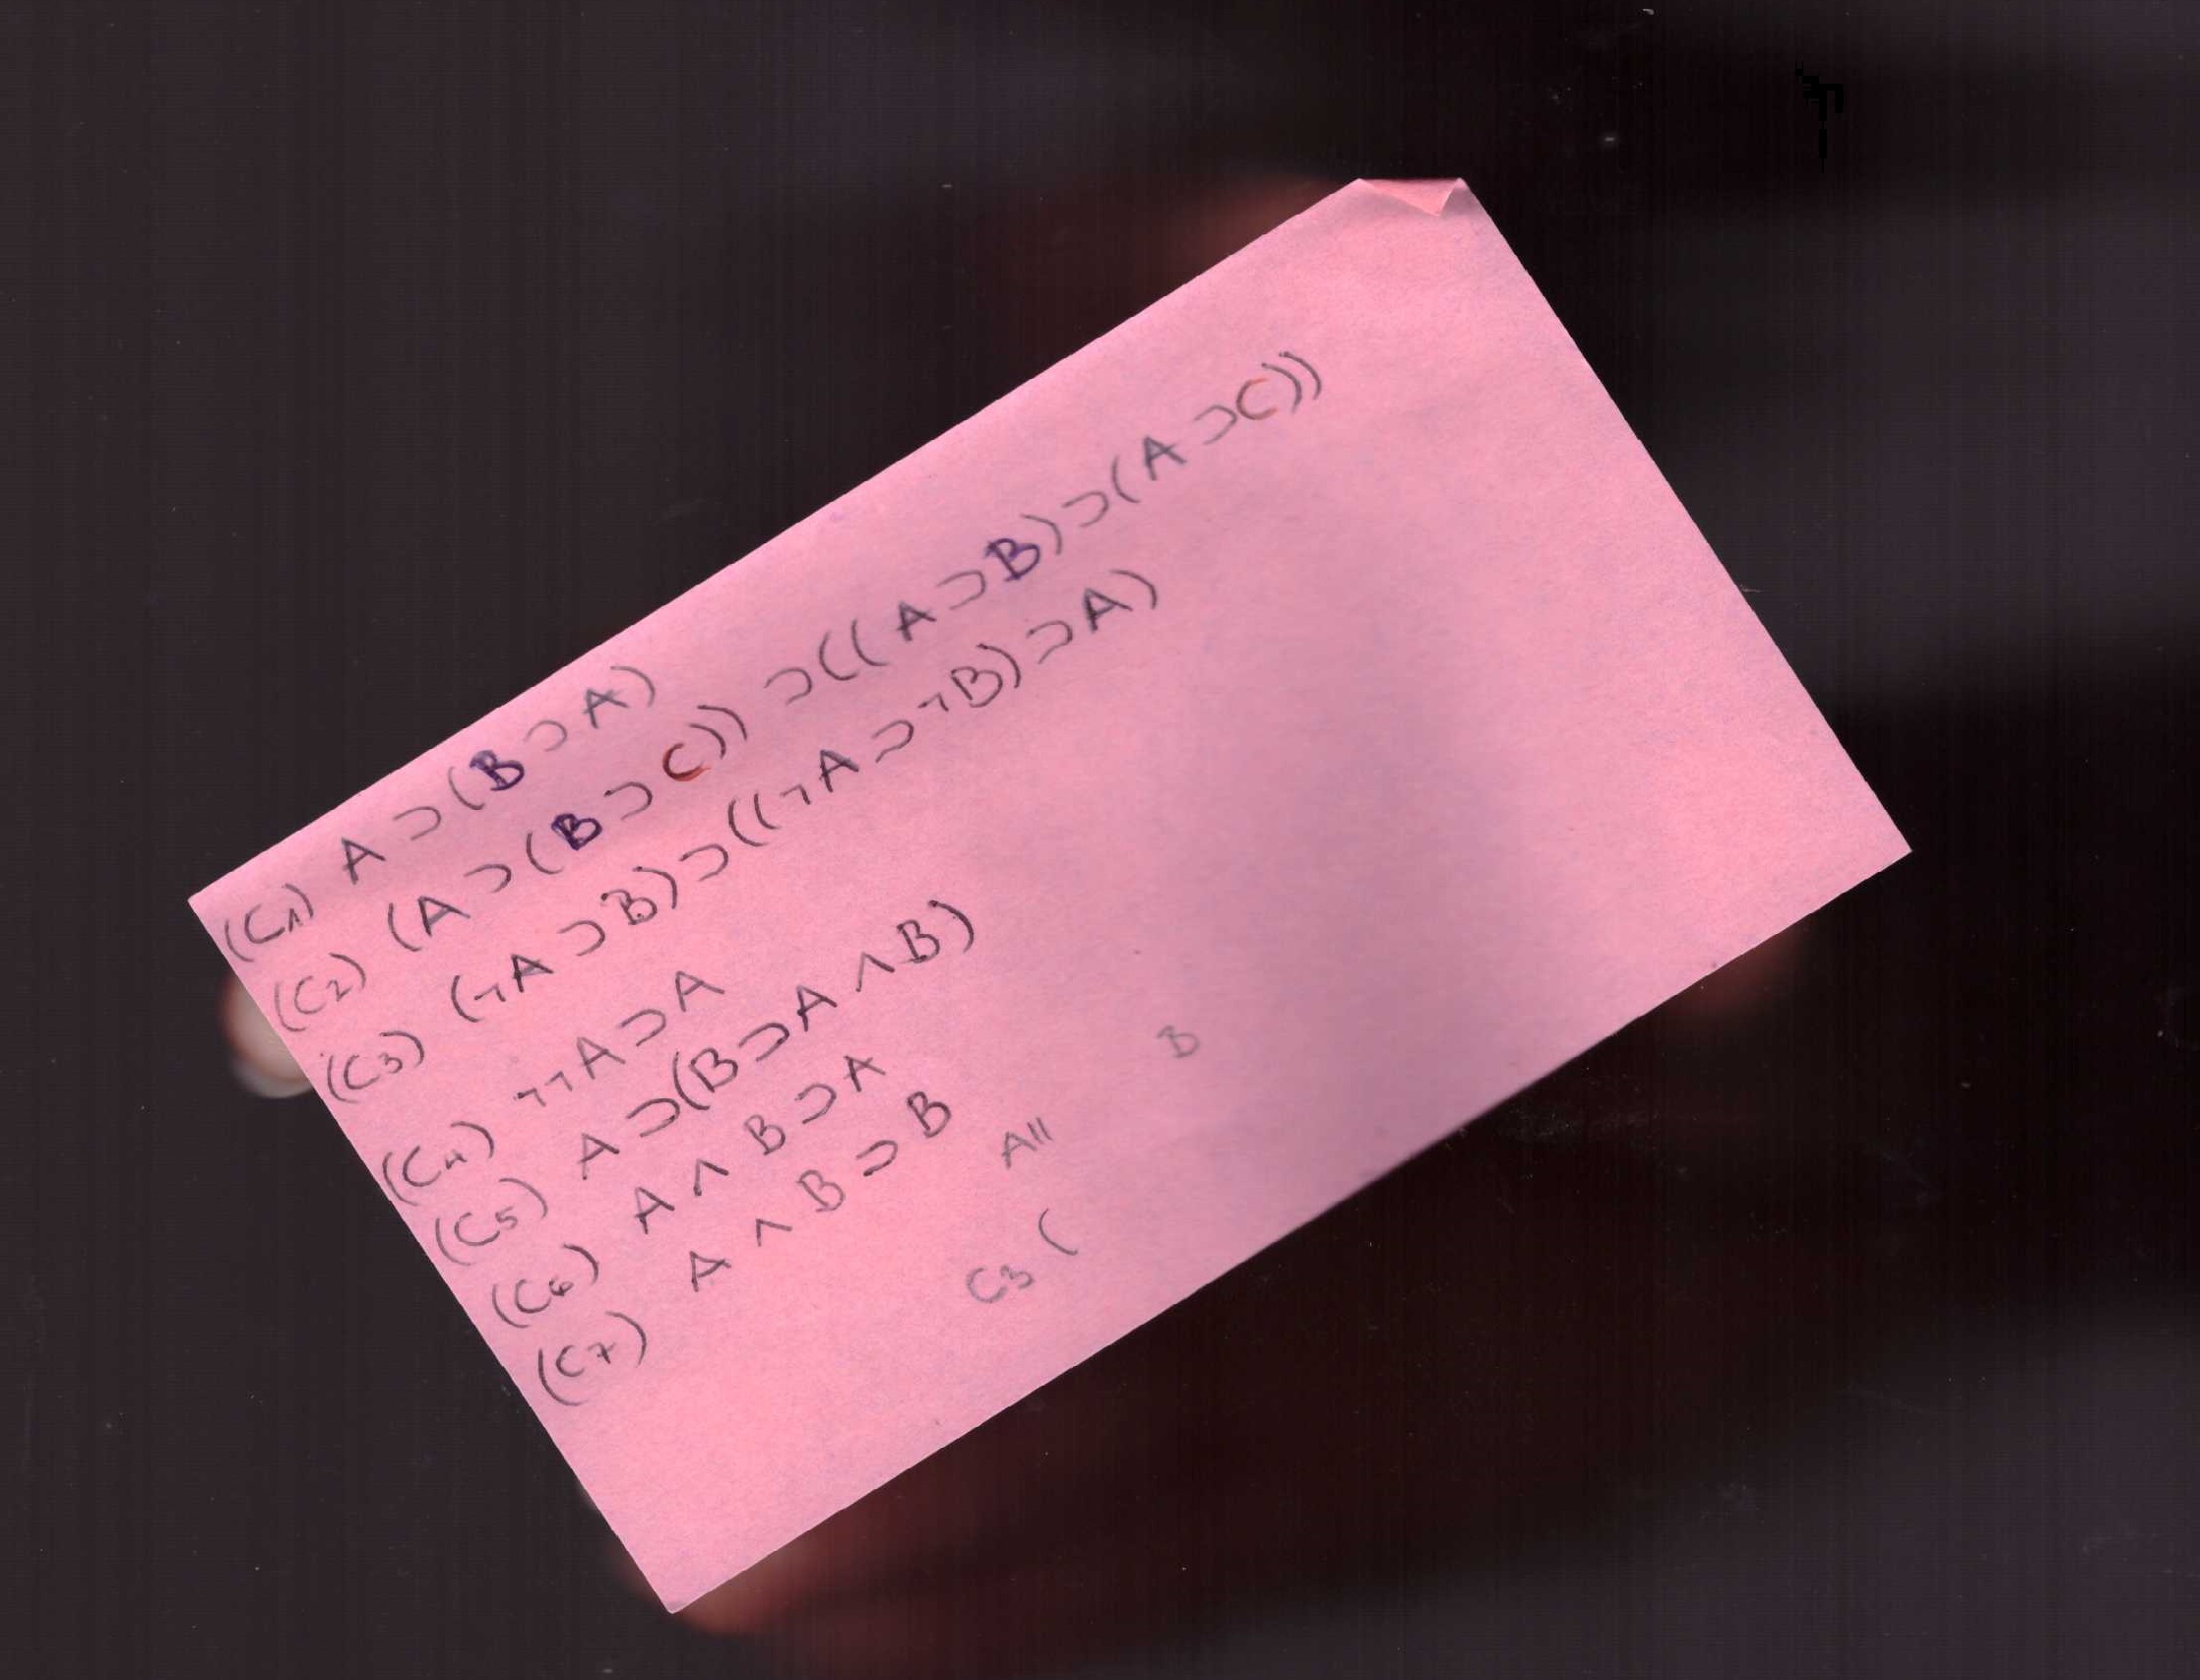 (C1) A ⊃ (B ⊃ A)
(C2) (A ⊃ (B ⊃ C)) ⊃ ((A ⊃ B) ⊃ (A ⊃ C))
(C3) (¬A ⊃ B) ⊃ ((¬A ⊃ ¬B) ⊃ A)
(C4) ¬¬A ⊃ A
(C5) A ⊃ (B ⊃ A ∧ B)
(C6) A ∧ B ⊃ A
(C7) A ∧ B ⊃ B
A॥ B
C3 (